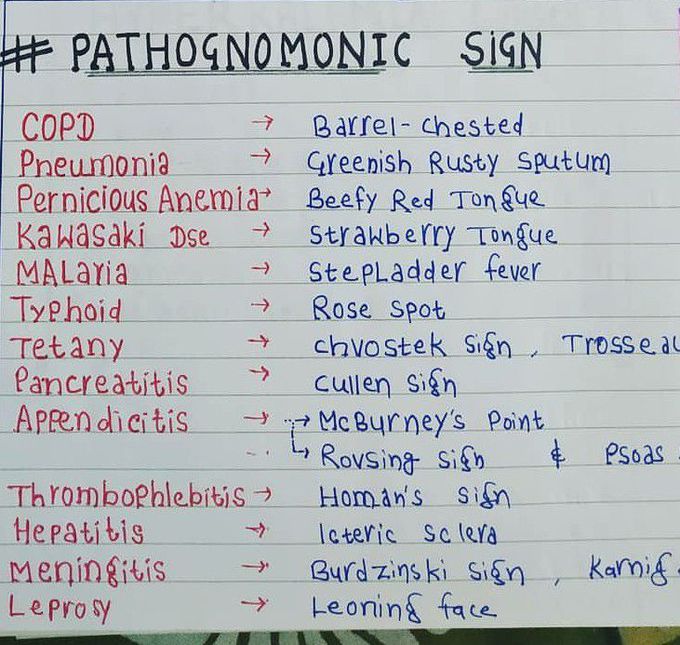 # PATHOGNOMONIC SIGN
COPD → Barrel-chested
Pneumonia → Greenish Rusty sputum
Pernicious Anemia → Beefy Red Tongue
Kawasaki Dse → Strawberry Tongue
MALaria → StepLadder fever
Typhoid → Rose spot
Tetany → chvostek sign , Trosseau
Pancreatitis → cullen sign
Appendicitis → → McBurney's Point
↳ Rovsing sign & Psoas
Thrombophlebitis → Homan's sign
Hepatitis → Icteric sclera
Meningitis → Burdzinski sign , Karnig
Leprosy → Leoning face